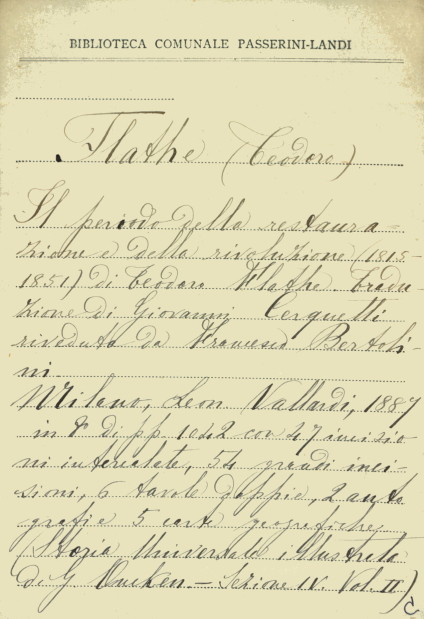 BIBLIOTECA COMUNALE PASSERINI-LANDI
Flathe (Teodoro)
Il periodo della restaura=
zione e della rivoluzione (1815-
1851) di Teodoro Flathe. Tradu-
zione di Giovanni Cerquetti
riveduta da Francesco Bertoli-
ni.
Milano, Leon Vallardi, 1887
in 8° di pp. 1042 con 27 incisio
ni intercalate, 54 grandi inci-
sioni, 6 tavole doppie, 2 auto
grafie 5 carte geografiche
(Storia Universale illustrata
di G. Oncken - Sezione IV. Vol. II)